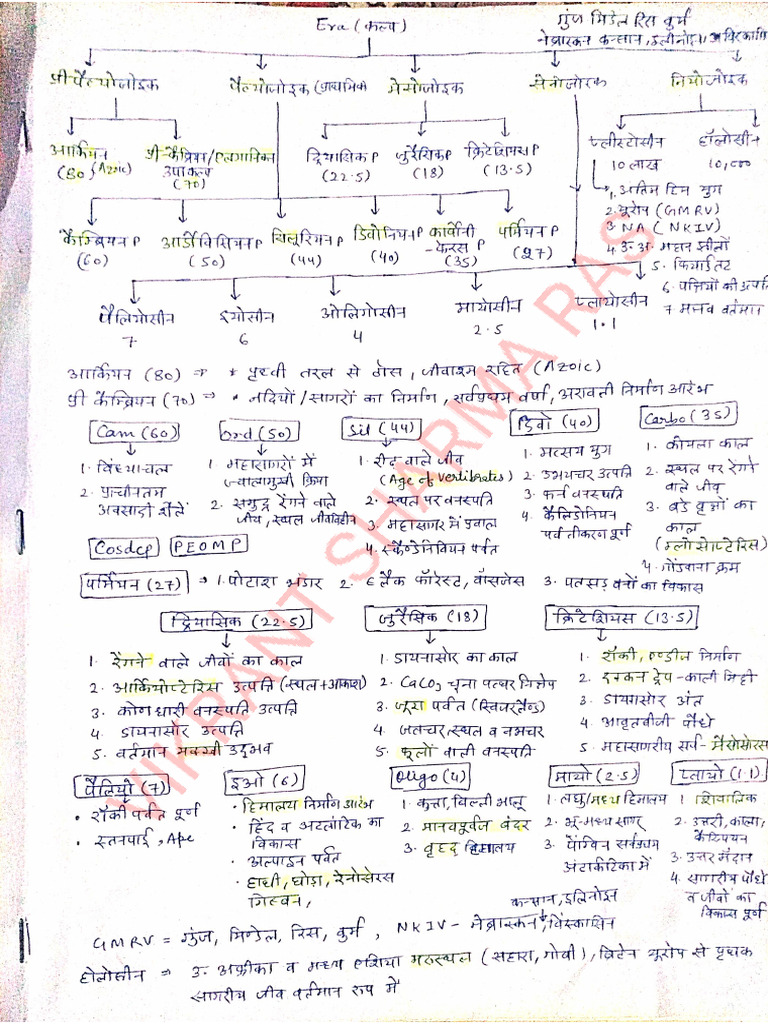 Era (कल्प)
गुंज मिंडेल रिस वुर्म
नेब्रास्कन कन्सान, इलीनोइ
प्री पैल्योजोइक पैल्योजोइक (प्राथमिक) मेसोजोइक सेनोजोइक नियोजोइक
आर्कियन प्री-कैम्ब्रिया/एलगानिक ट्रियासिक P जुरैसिक P क्रिटेशियस P प्लीस्टोसीन हॉलोसीन
(80) (Azoic) उपाकल्प (22.5) (18) (13.5) 10 लाख 10,000
(70)
1. अंतिम हिम युग
2. यूरोप (GMRV)
3. NA (NKIV)
4. उ. अ. महान झीलों
5. फियार्ड तट
6. पक्षियों की उत्पत्ति
7. मानव वर्तमान
कैम्ब्रियन P आर्डोविसियन P सिलुरियन P डिवोनियन P कार्बोनी-फेरस P पर्मियन P
(60) (50) (44) (40) (35) (27)
पैलियोसीन इयोसीन ओलिगोसीन मायोसीन प्लायोसीन
7 6 4 2.5 1.1
आर्कियन (80) ⇒ * पृथ्वी तरल से ठोस, जीवाश्म रहित (Azoic)
प्री कैम्ब्रियन (70) ⇒ * नदियों/सागरों का निर्माण, सर्वप्रथम वर्षा, अरावली निर्माण आरंभ
Cam (60)
1. विंध्याचल
2. प्राचीनतम
अवसादी शैलें
Ord (50)
1. महासागरों में
ज्वालामुखी क्रिया
2. समुद्र रेंगने वाले
जीव, स्थल जीवविहीन
Sil (44)
1. रीढ़ वाले जीव
(Age of Vertibrates)
2. स्थल पर वनस्पति
3. महासागर में प्रवाल
4. स्कैण्डेनिवियन पर्वत
डिवो (40)
1. मत्सय युग
2. उभयचर उत्पत्ति
3. फर्न वनस्पति
4. कैलिडोनियन
पर्वतीकरण पूर्ण
Carbo (35)
1. कोयला काल
2. स्थल पर रेंगने
वाले जीव
3. बडे वृक्षों का
काल
(ग्लोसोप्टेरिस)
4. गोंडवाना क्रम
Cosdcp PEOMP
पर्मियन (27) ⇒ 1. पोटाश भंडार 2. ब्लैक फॉरेस्ट, वॉसजेस 3. पतझड़ वनों का विकास
ट्रियासिक (22.5)
1. रेंगने वाले जीवों का काल
2. आर्कियोप्टेरिस उत्पत्ति (स्थल+आकाश)
3. कोणधारी वनस्पति उत्पत्ति
4. डायनासोर उत्पत्ति
5. वर्तमान मक्खी उद्भव
जुरैसिक (18)
1. डायनासोर का काल
2. CaCO3 चूना पत्थर निक्षेप
3. जूरा पर्वत (स्विजरलैण्ड)
4. जलचर/स्थल व नभचर
5. फूलों वाली वनस्पति
क्रिटेशियस (13.5)
1. रॉकी, एण्डीज निर्माण
2. दक्कन ट्रेप - काली मिट्टी
3. डायनासोर अंत
4. आवृतबीजी पौधे
5. महासागरीय सर्प - मैसोसोरस
पैलियो (7)
• रॉकी पर्वत पूर्ण
• स्तनपाई, Ape
इओ (6)
• हिमालय निर्माण आरंभ
• हिंद व अटलांटिक का
विकास
• अल्पाइन पर्वत
• हाथी, घोड़ा, रेनोसेरस
गिब्बन,
Oligo (4)
1. कुत्ता, बिल्ली भालू
2. मानवपूर्वज बंदर
3. वृहद हिमालय
मायो (2.5)
1. लघु/मध्य हिमालय
2. भू-मध्य सागर
3. पेंग्विन सर्वप्रथम
अंटार्कटिका में
प्लायो (1.1)
1. शिवालिक
2. उत्तरी, काला,
कैस्पियन
3. उत्तर मैदान
4. सागरीय पौधे
व जीवों का
विकास पूर्ण
कन्सान, इलिनोइ
GMRV = गुंज, मिण्डेल, रिस, वुर्म, NKIV - नेब्रास्कन, विंस्कासिन
होलोसीन ⇒ उ. अफ्रीका व मध्य एशिया मरुस्थल (सहारा, गोबी), ब्रिटेन यूरोप से पृथक
सागरीय जीव वर्तमान रूप में
VIKRANT SHARMA RAS